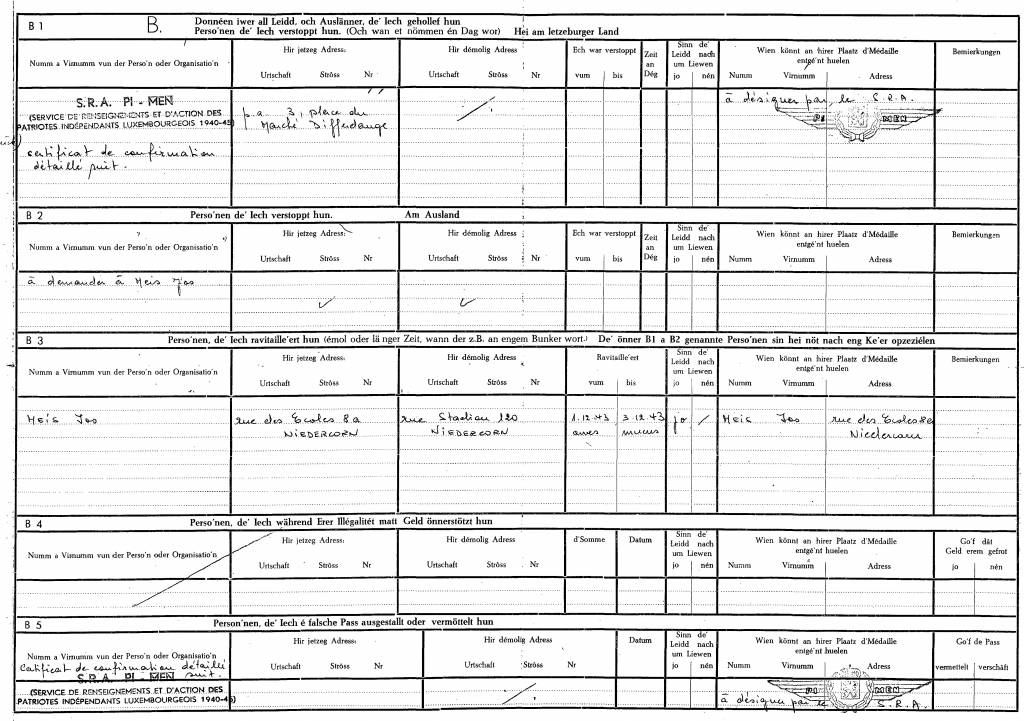 B 1 B. Donnéen iwer all Leidd, och Auslänner, de' Iech gehollef hun
Perso'nen de' Iech verstoppt hun. (Och wan et nömmen én Dag wor) Hei am letzeburger Land
Numm a Virnumm vun der Perso'n oder Organisatio'n
Hir jetzeg Adress:
Urtschaft Ströss Nr
Hir démolig Adress
Urtschaft Ströss Nr
Ech war verstoppt
vum bis
Zeit
an
Dég
Sinn de'
Leidd nach
um Liewen
jo nén
Wien könnt an hirer Plaatz d'Médaille
entgé'nt huelen
Numm Virnumm Adress
Bemierkungen
S.R.A. PI - MEN
(SERVICE DE RENSEIGNEMENTS ET D'ACTION DES
PATRIOTES INDÉPENDANTS LUXEMBOURGEOIS 1940-45)
certificat de confirmation
détaillé suit.
p.a. 3, place du
Marché Differdange
à désigner par le S.R.A.
PI MEN
B 2 Perso'nen de' Iech verstoppt hun. Am Ausland
Numm a Virnumm vun der Perso'n oder Organisatio'n
Hir jetzeg Adress:
Urtschaft Ströss Nr
Hir démolig Adress
Urtschaft Ströss Nr
Ech war verstoppt
vum bis
Zeit
an
Dég
Sinn de'
Leidd nach
um Liewen
jo nén
Wien könnt an hirer Plaatz d'Médaille
entgé'nt huelen
Numm Virnumm Adress
Bemierkungen
à demander à Meis Jos
B 3 Perso'nen, de' Iech ravitaille'ert hun (émol oder länger Zeit, wann der z.B. an engem Bunker wort.) De' önner B1 a B2 genannte Perso'nen sin hei nöt nach eng Ke'er opzeziélen
Numm a Virnumm vun der Perso'n oder Organisatio'n
Hir jetzeg Adress:
Urtschaft Ströss Nr
Hir démolig Adress
Urtschaft Ströss Nr
Ravitaille'ert
vum bis
Sinn de'
Leidd nach
um Liewen
jo nén
Wien könnt an hirer Plaatz d'Médaille
entgé'nt huelen
Numm Virnumm Adress
Bemierkungen
Meis Jos
rue des Ecoles 8a
NIEDERCORN
rue Stadion 120
NIEDERCORN
1.12.43
3.12.43
jo /
Meis Jos
rue des Ecoles 8a
Niedercorn
B 4 Perso'nen, de' Iech während Erer Illégalitét matt Geld önnerstötzt hun
Numm a Virnumm vun der Perso'n oder Organisatio'n
Hir jetzeg Adress:
Urtschaft Ströss Nr
Hir démolig Adress
Urtschaft Ströss Nr
d'Somme
Datum
Sinn de'
Leidd nach
um Liewen
jo nén
Wien könnt an hirer Plaatz d'Médaille
entgé'nt huelen
Numm Virnumm Adress
Go'f dât
Geld erem gefrot
jo nén
B 5 Person'nen, de' Iech é falsche Pass ausgestallt oder vermöttelt hun
Numm a Virnumm vun der Perso'n oder Organisatio'n
Hir jetzeg Adress:
Urtschaft Ströss Nr
Hir démolig Adress
Urtschaft Ströss Nr
Datum
Sinn de'
Leidd nach
um Liewen
jo nén
Wien könnt an hirer Plaatz d'Médaille
entgé'nt huelen
Numm Virnumm Adress
Go'f de Pass
vermettelt verschâft
Catificat de confirmation détaillé
S.R.A. PI - MEN suit.
(SERVICE DE RENSEIGNEMENTS ET D'ACTION DES
PATRIOTES INDÉPENDANTS LUXEMBOURGEOIS 1940-45)
PI MEN
à désigner par le S.R.A.